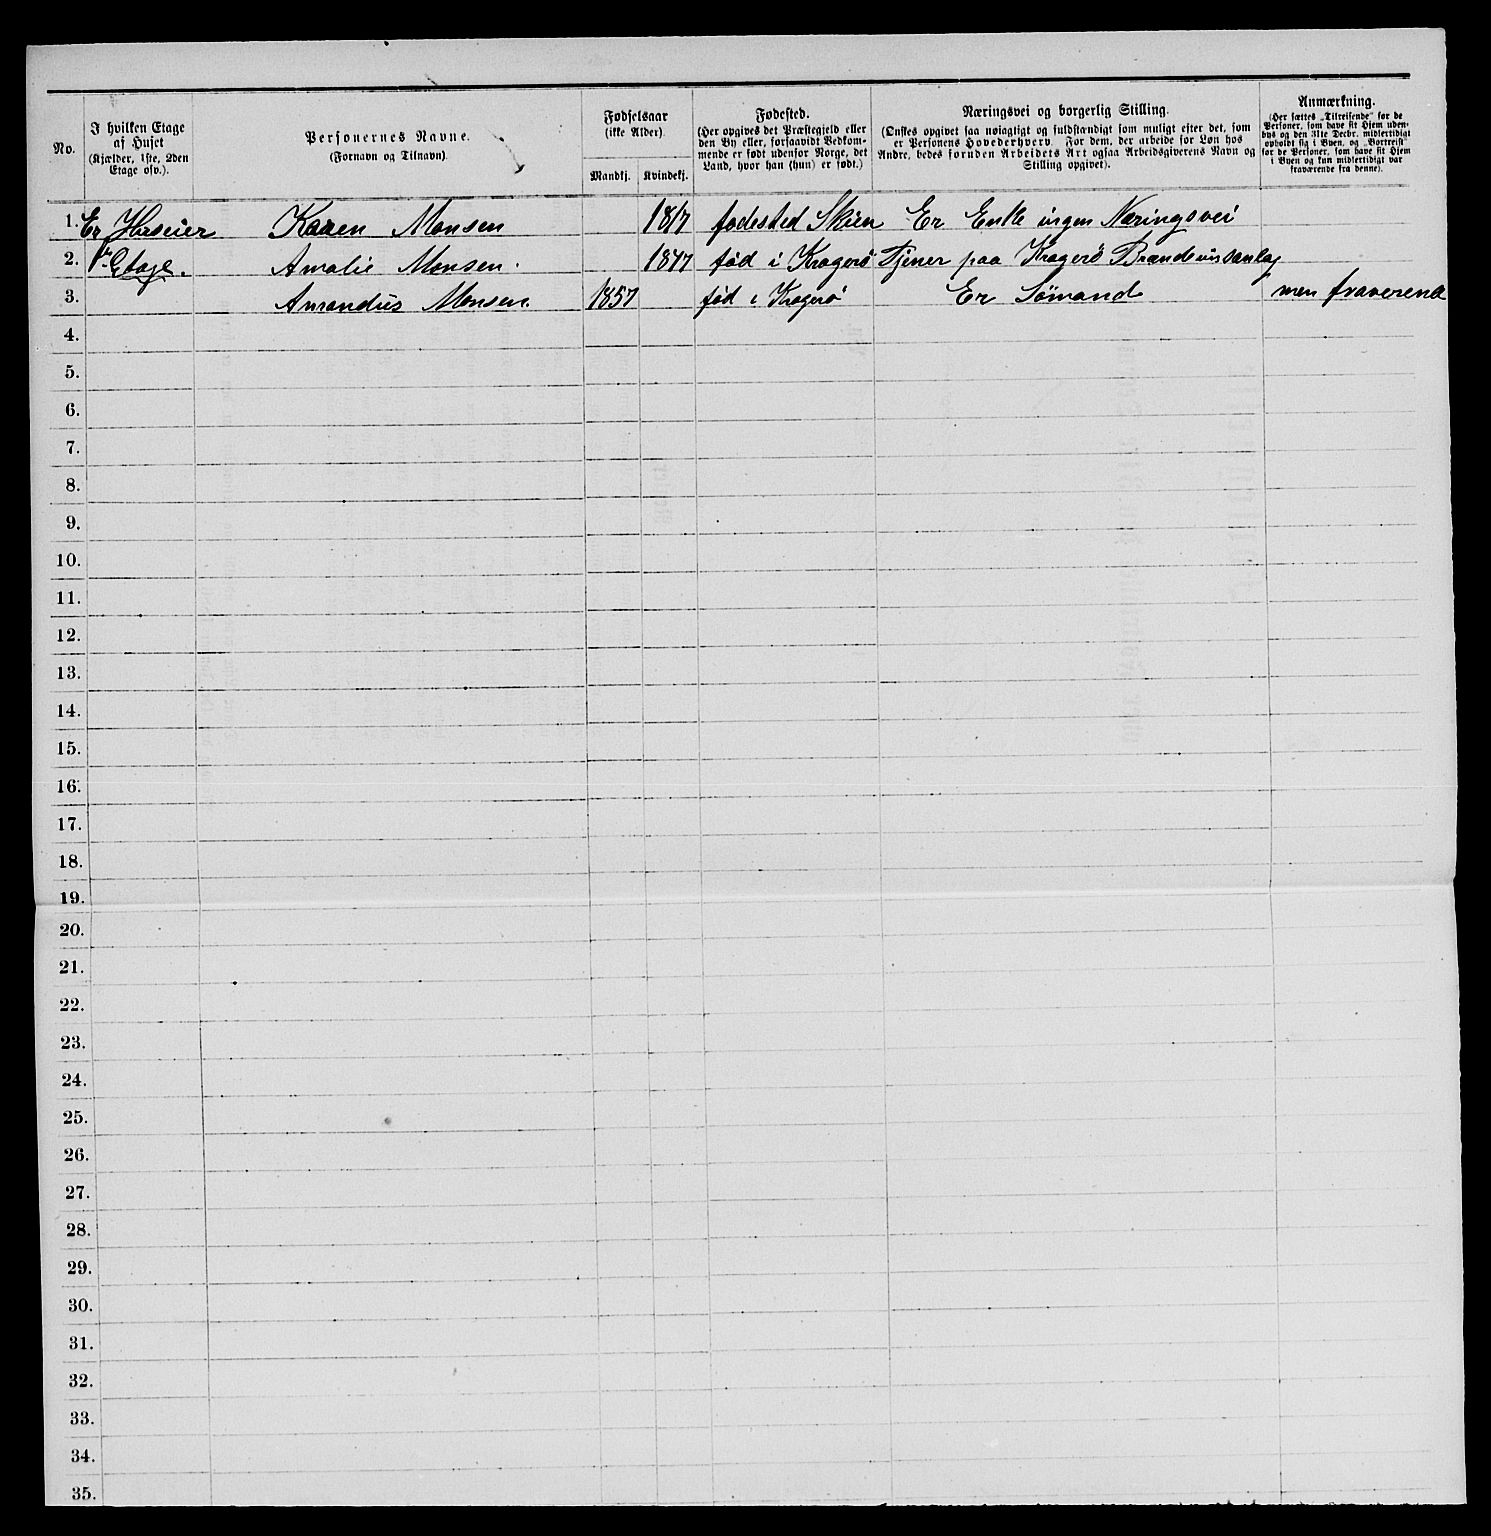 No.
I hvilken Etage
af Huset
(Kjælder, 1ste, 2den
Etage osv.).
Personernes Navne.
(Fornavn og Tilnavn).
Fødselsaar
(ikke Alder)
Mandkj.
Kvindekj.
Fødested.
(Her opgives det Præstegjeld eller
den By eller, forsaavidt Vedkom-
mende er født udenfor Norge, det
Land, hvor han (hun) er født.)
Næringsvei og borgerlig Stilling.
(Ønskes opgivet saa nøiagtigt og fuldstændigt som muligt efter det, som
er Personens Hovederhverv. For dem, der arbeide for Løn hos
Andre, bedes foruden Arbeidets Art ogsaa Arbeidsgiverens Navn og
Stilling opgivet).
Anmærkning.
(Her sættes „Tilreisende" for de
Personer, som have sit Hjem uden-
bys og den 31te Decbr. midlertidigt
opholdt sig i Byen, og „Bortreist"
for de Personer, som have sit Hjem
i Byen og kun midlertidigt var
fraværende fra denne).
1. Er Huseier Karen Monsen 1817 fødested Skien Er Enke ingen Næringsvei
2. 1ste Etage. Amalie Monsen. 1847 fød i Kragerö Tjener paa Kragerö Brændevinsanlag
3. Amandus Monsen. 1857 fød i Kragerö Er Sømand men fraverend
4.
5.
6.
7.
8.
9.
10.
11.
12.
13.
14.
15.
16.
17.
18.
19.
20.
21.
22.
23.
24.
25.
26.
27.
28.
29.
30.
31.
32.
33.
34.
35.